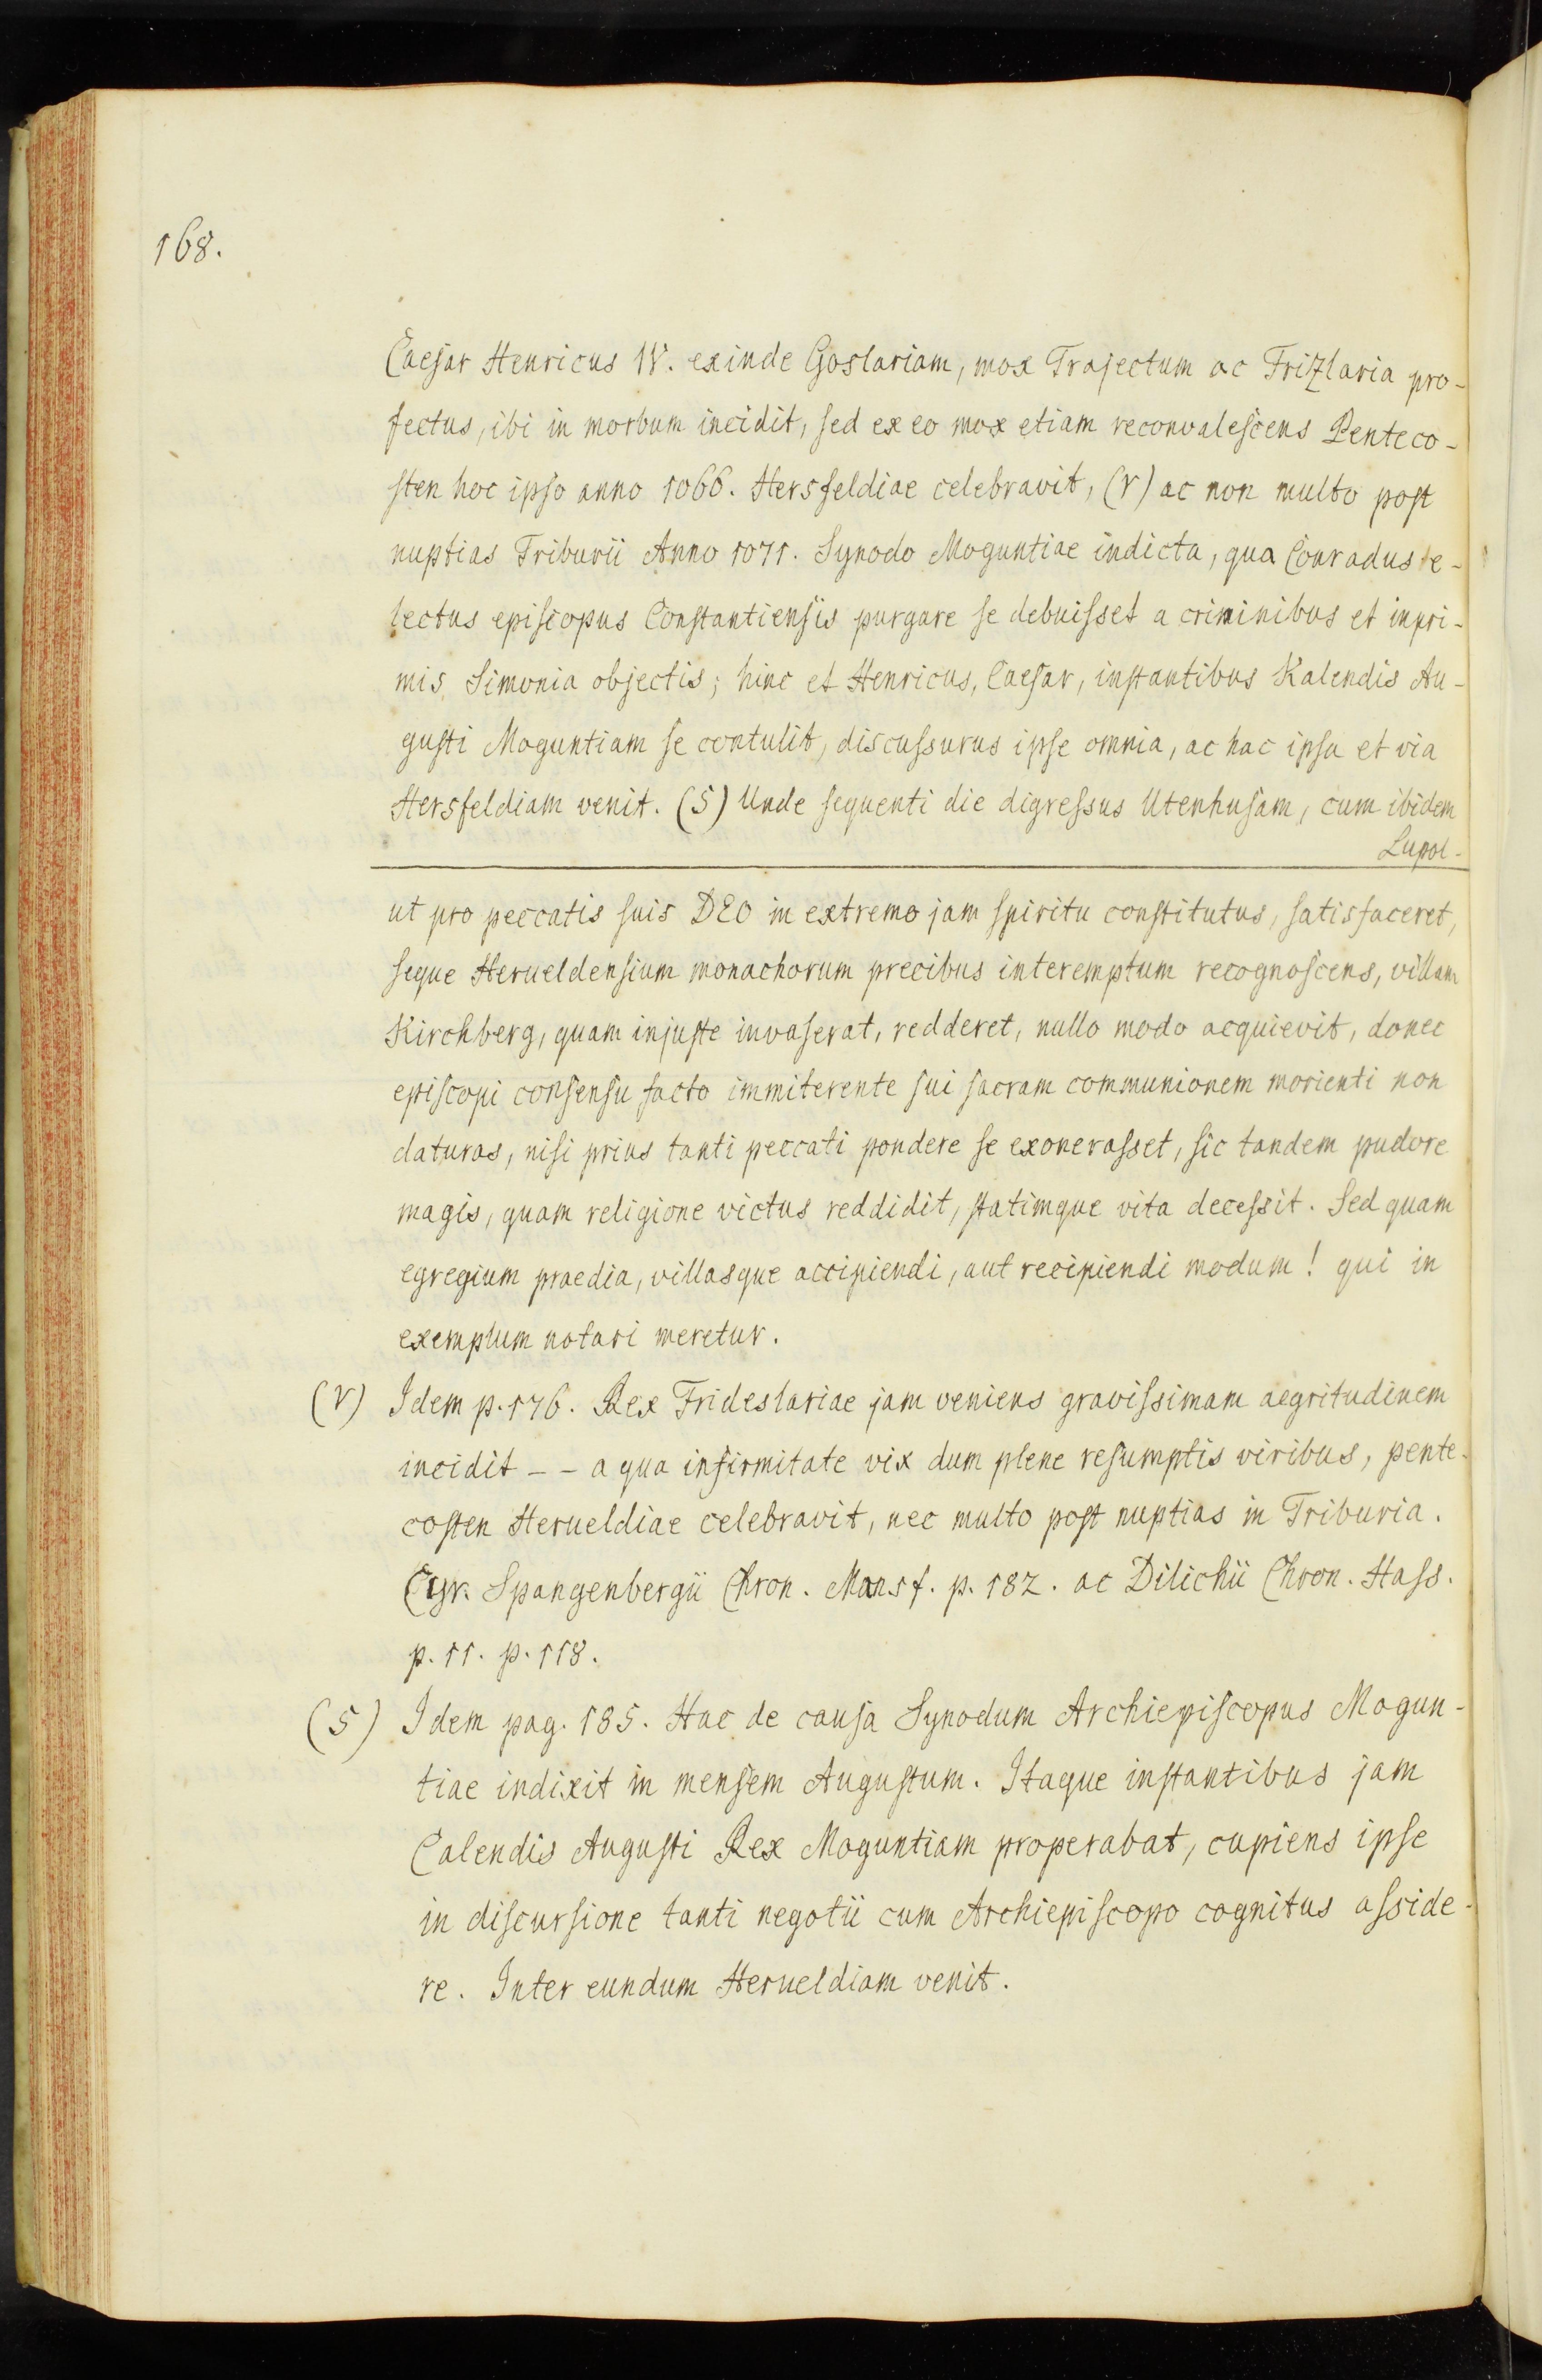 168.
Caesar Henricus IV. exinde Goslariam, mox Trajectum ac Frizlaria pro-
fectus, ibi in morbum incidit, sed ex eo mox etiam reconvalescens Penteco-
sten hoc ipso anno 1066. Hersfeldiae celebravit, (r) ac non multo post
nuptias Triburii Anno 1071. Synodo Moguntiae indicta, qua Conradus e-
lectus episcopus Constantiensis purgare se debuisset a criminibus et inpri-
mis Simonia objectis; hinc et Henricus, Caesar, instantibus Kalendis Au-
gusti Moguntiam se contulit, discussurus ipse omnia, ac hac ipsa et via
Hersfeldiam venit. (s) Unde sequenti die digressus Utenhusam, cum ibidem
Lupol-
ut pro peccatis suis DEO in extremo jam spiritu constitutus, satisfaceret,
seque Herueldensium monachorum precibus interemptum recognoscens, villam
Kirchberg, quam injuste invaserat, redderet, nullo modo acquievit, donec
episcopi consensu facto immiterente sui sacram communionem morienti non
daturas, nisi prius tanti peccati pondere se exonerasset, sic tandem pudore
magis, quam religione victus reddidit, statimque vita decessit. Sed quam
egregium praedia, villasque accipiendi, aut recipiendi modum! qui in
exemplum notari meretur.
(r) Idem p. 176. Rex Frideslariae jam veniens gravissimam aegritudinem
incidit -- a qua infirmitate vix dum plene resumptis viribus, pente-
costen Herueldiae celebravit, nec multo post nuptias in Triburia.
Cfr. Spangenbergii Chron. Mansf. p. 182. ac Dilichii Chron. Hass.
p. 11. p. 118.
(s) Idem pag. 185. Hac de causa Synodum Archiepiscopus Mogun-
tiae indixit in mensem Augustum. Itaque instantibus jam
Calendis Augusti Rex Moguntiam properabat, cupiens ipse
in discursione tanti negotii cum Archiepiscopo cognitus asside-
re. Inter eundum Herueldiam venit.